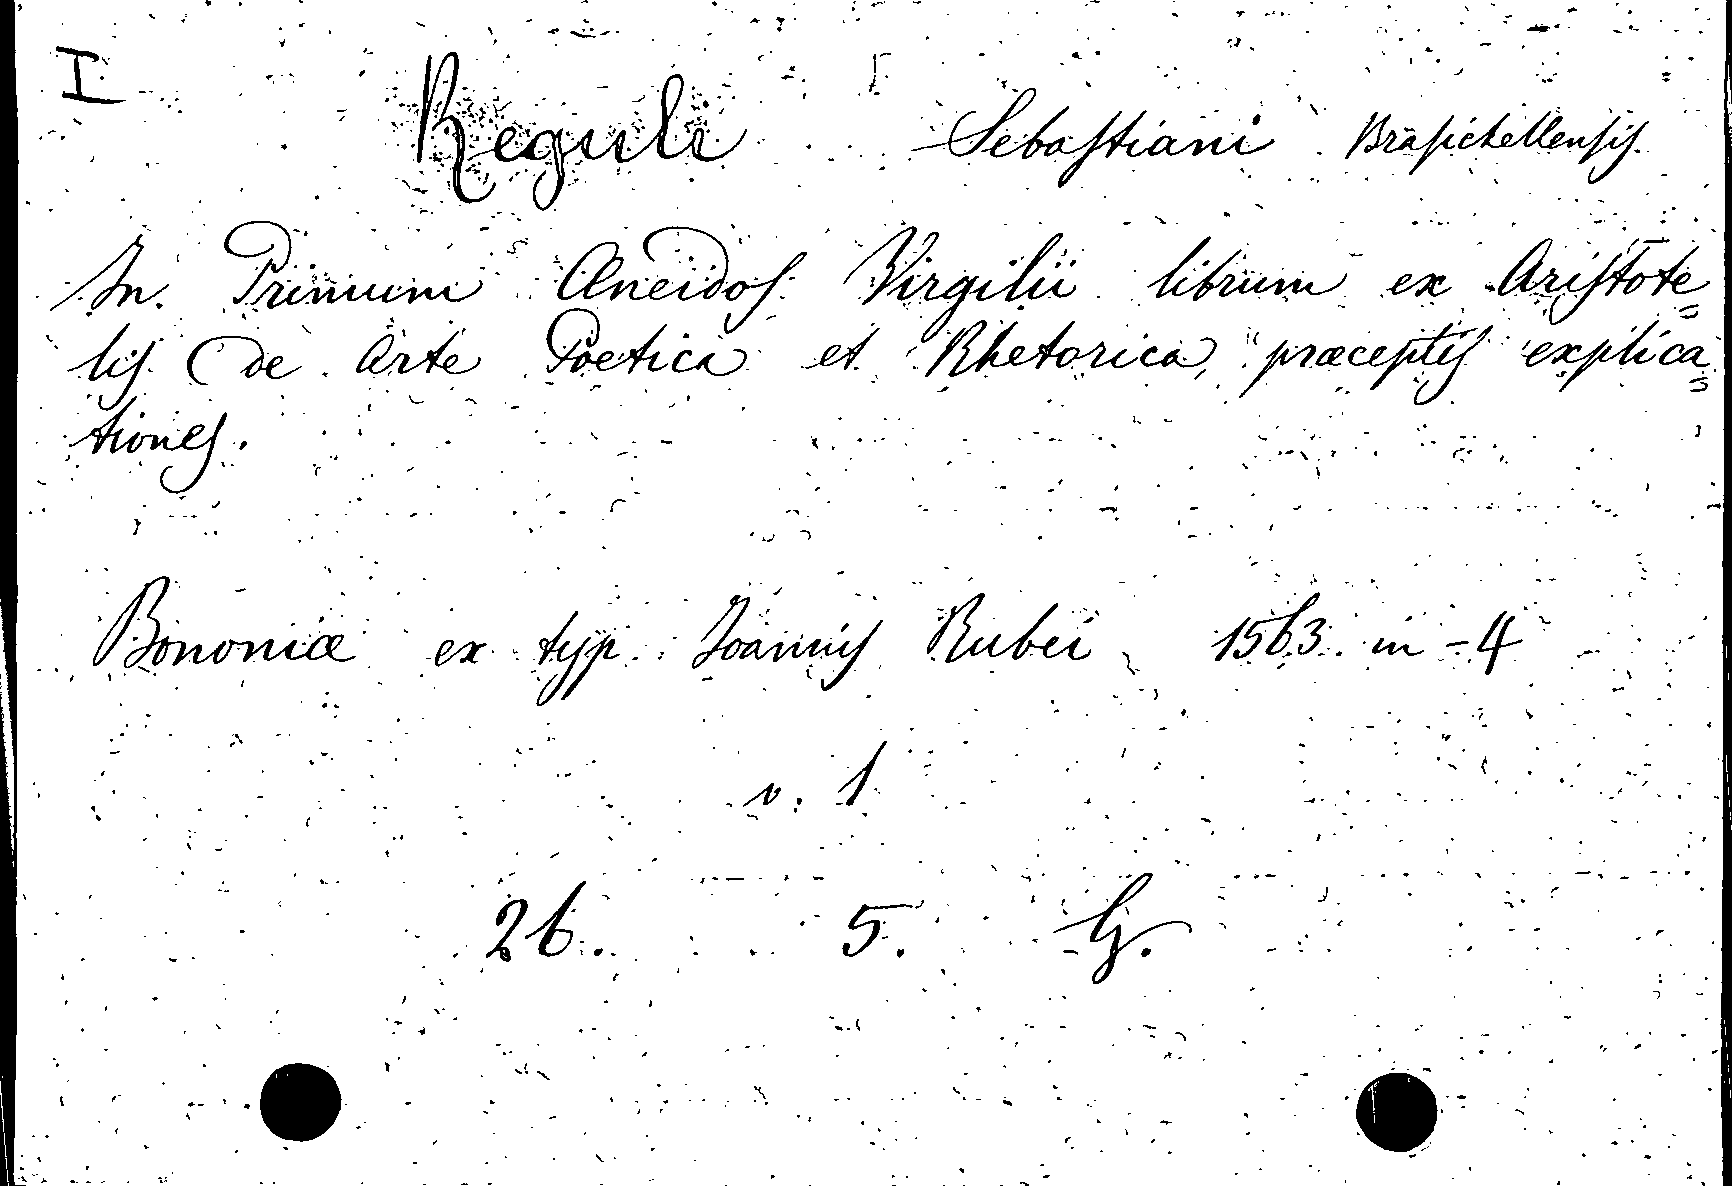 I
Reguli Sebastiani Brasichellensis.
In Primum Æneidos Virgilii librum ex Aristote=
lis de Arte Poetica et Rhetorica præceptis explica=
tiones.
Bononiæ ex typ. Joannis Rubei 1563. in-4
v. 1
26. 5. G.